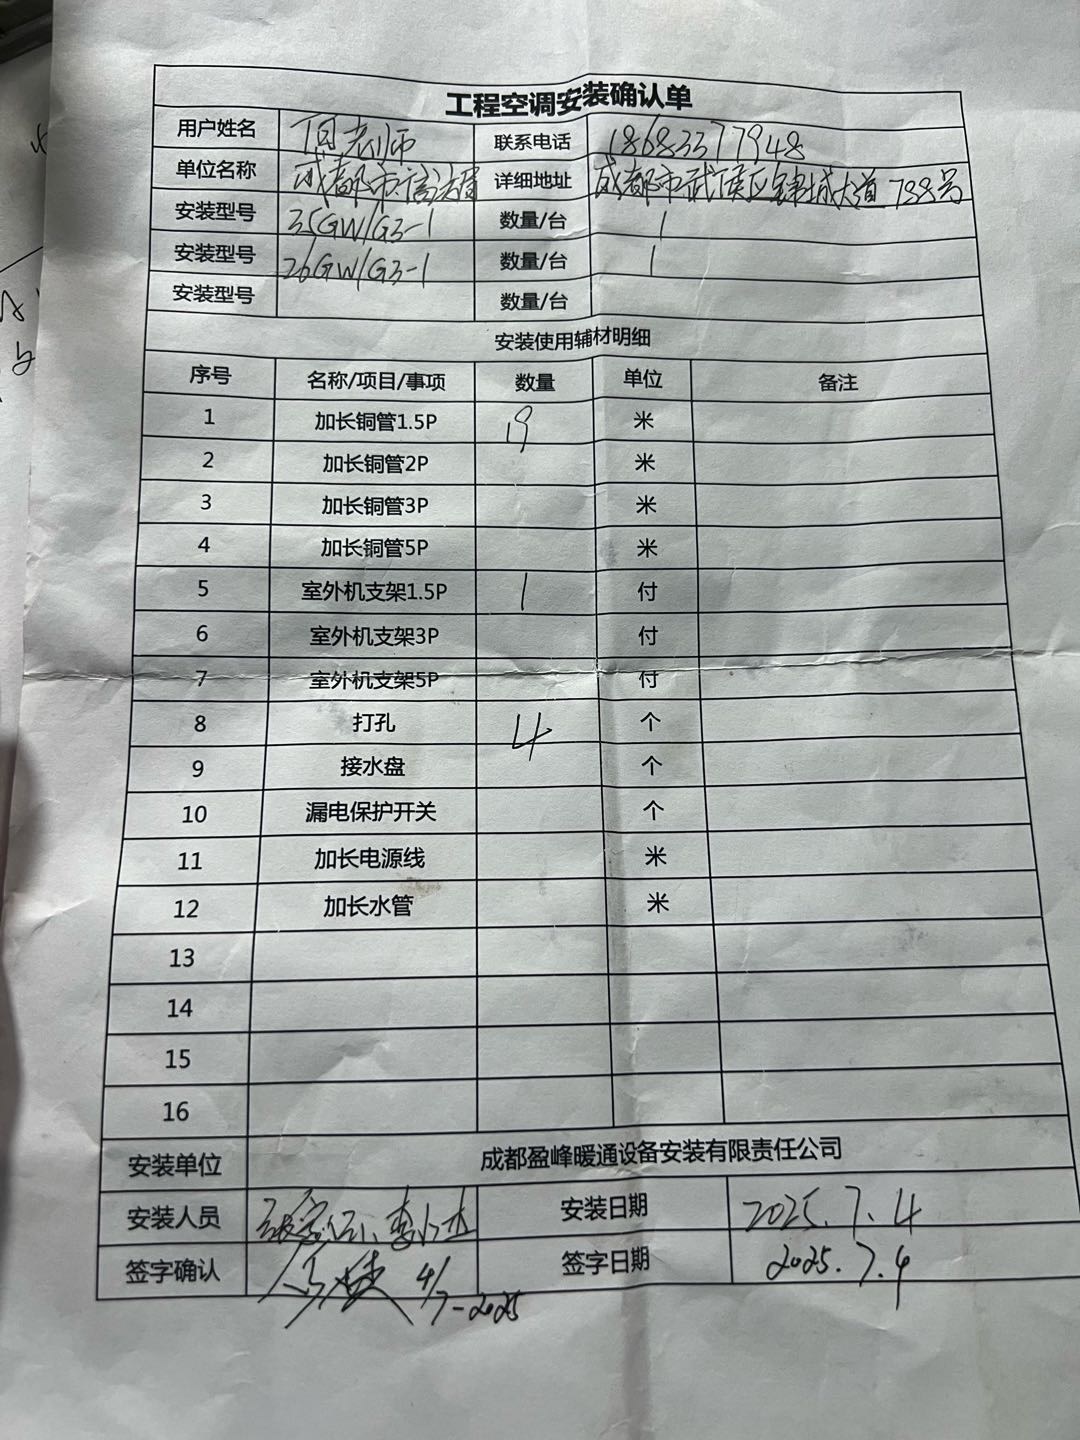 工程空调安装确认单
用户姓名 老师 联系电话 18683377948
单位名称 成都市信访局 详细地址 成都市武侯区锦城大道798号
安装型号 35GW/G3-1 数量/台 1
安装型号 26GW/G3-1 数量/台 1
安装型号 数量/台
安装使用辅材明细
序号 名称/项目/事项 数量 单位 备注
1 加长铜管1.5P 19 米
2 加长铜管2P 米
3 加长铜管3P 米
4 加长铜管5P 米
5 室外机支架1.5P 1 付
6 室外机支架3P 付
7 室外机支架5P 付
8 打孔 4 个
9 接水盘 个
10 漏电保护开关 个
11 加长电源线 米
12 加长水管 米
13
14
15
16
安装单位 成都盈峰暖通设备安装有限责任公司
安装人员 安装日期 2025.7.4
签字确认 4/7-2025 签字日期 2025.7.4